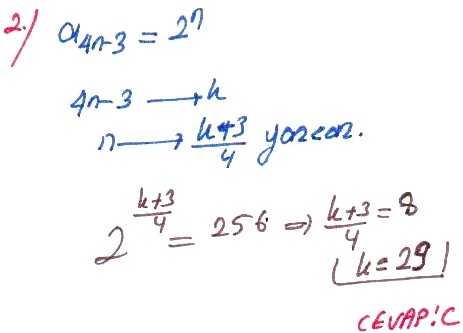 2.) a_{4n-3} = 2^n
4n-3 → k
n → \frac{k+3}{4} yazılır.
2^{\frac{k+3}{4}} = 256 ⇒ \frac{k+3}{4} = 8
k = 29
CEVAP: C